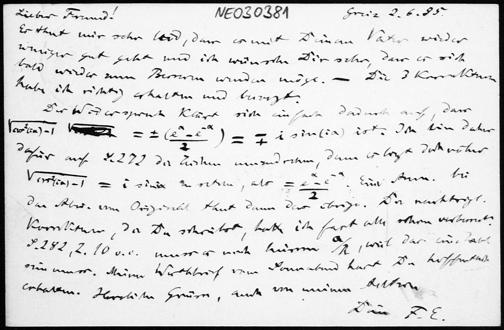 NEO30381
Lieber Freund! Greiz 2.6.85.
Es thut mir sehr leid, dass es mit Deinem Vater wieder
weniger gut geht und ich wünsche Dir sehr, dass es sich
bald wieder zum Bessern wenden möge. — Die 2 Korrekturen
habe ich richtig erhalten und besorgt.
Der Widerspruch klärt sich einfach dadurch auf, dass
√cos²(ix)-1 = ± (eˣ - e⁻ˣ)/2 = ∓ i sin(ix) ist. Ich bin daher
dafür auf S.272 das Zeichen umzuändern, dann
√cos²(ix)-1 = i sin ix zu setzen, als = eˣ - e⁻ˣ/2. Eine Anm. bei
das vom Original thut dann das übrige. Die
Korrekturen, die Du schreibst, hatte ich fast alle schon verbessert.
S.282, Z. 10 v.o. muss es noch heissen
sein muss. Meinen Brief vom Sonnabend hast Du hoffentlich
erhalten. Herzliche Grüsse, auch von meinen Eltern
Dein F. E.